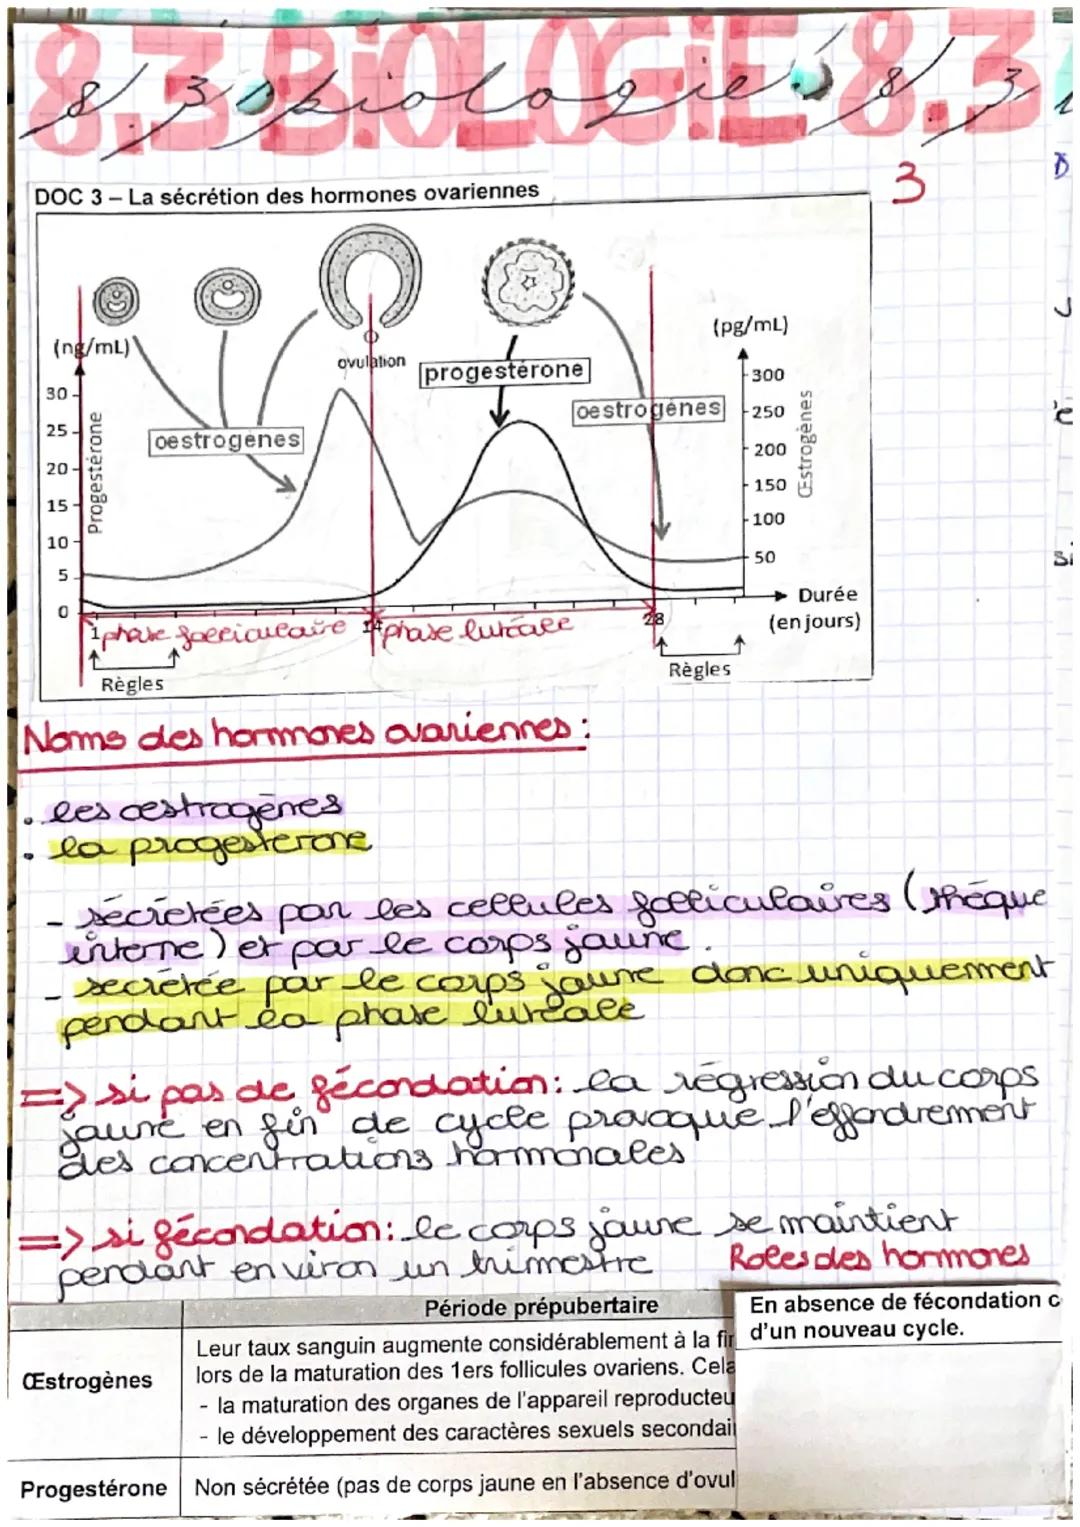 8.3 BiOLOGiE 8.3
8.3 biologie 8.3
3
DOC 3 – La sécrétion des hormones ovariennes
(ng/mL)
ovulation
progestérone
(pg/mL)
oestrogènes
oestrogènes
Progestérone
30
25
20
15
10
5
0
300
250
200
150
100
50
Œstrogènes
Durée
(en jours)
1 phase folliculaire 14 phase lutéale 28
Règles
Règles
Noms des hormones ovariennes :
. les œstrogènes
. la progesterone
- sécrétées par les cellules folliculaires (thèque
interne) et par le corps jaune.
- secrétée par le corps jaune donc uniquement
pendant la phase lutéale
=> si pas de fécondation: la régression du corps
jaune en fin de cycle provoque l'effondrement
des concentrations hormonales
=> si fécondation: le corps jaune se maintient
pendant environ un trimestre
Roles des hormones
Période prépubertaire
En absence de fécondation c
d'un nouveau cycle.
Œstrogènes
Leur taux sanguin augmente considérablement à la fin
lors de la maturation des 1ers follicules ovariens. Cela
- la maturation des organes de l'appareil reproducteu
- le développement des caractères sexuels secondai
Progestérone
Non sécrétée (pas de corps jaune en l'absence d'ovul